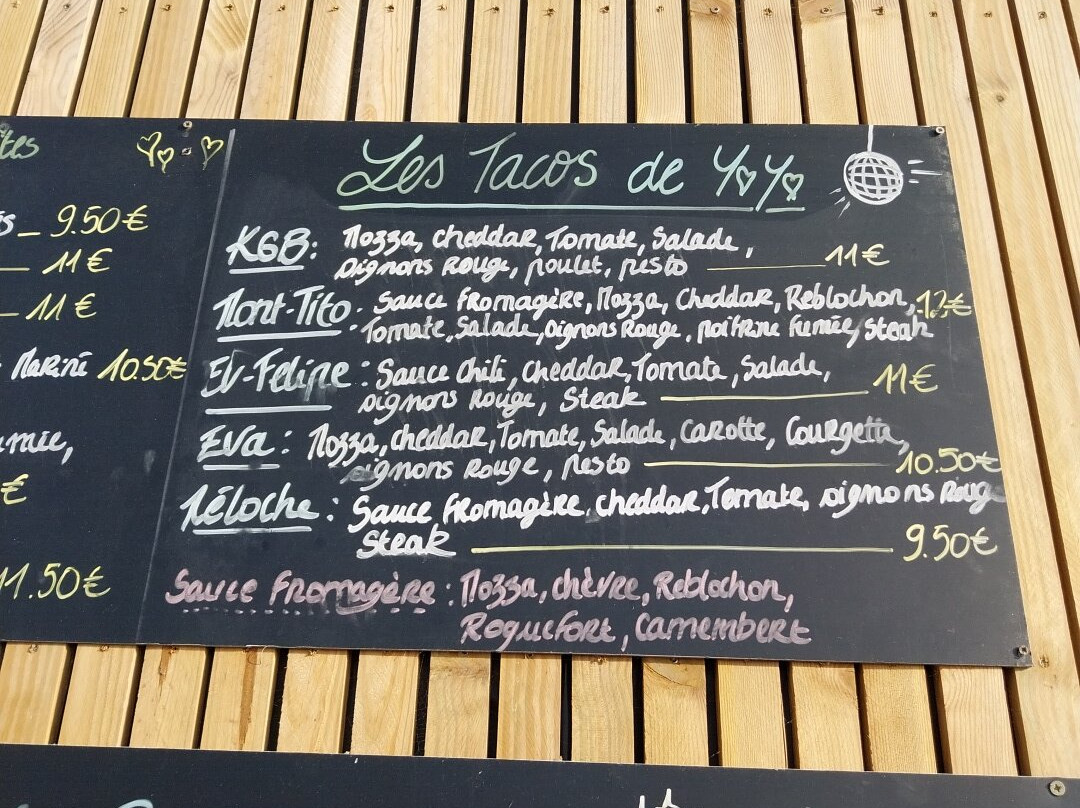 tes
s_ 9.50€
11€
11€
Mariné 10.50€
umée,
€
11.50€
Les Tacos de YoYo
KGB: Mozza, cheddar, Tomate, Salade,
Oignons Rouge, poulet, pesto 11€
Mont-Tito: Sauce Fromagère, Mozza, Cheddar, Reblochon, 12€
Tomate, Salade, Oignons Rouge, poitrine fumée, Steak
Ev-Feline: Sauce Chili, Cheddar, Tomate, Salade,
Oignons Rouge, Steak 11€
Eva: Mozza, cheddar, Tomate, Salade, Carotte, Courgette,
oignons Rouge, pesto 10.50€
Méloche: Sauce Fromagère, cheddar, Tomate, oignons Rouge
Steak 9.50€
Sauce Fromagère: Mozza, chèvre, Reblochon,
Roquefort, Camembert